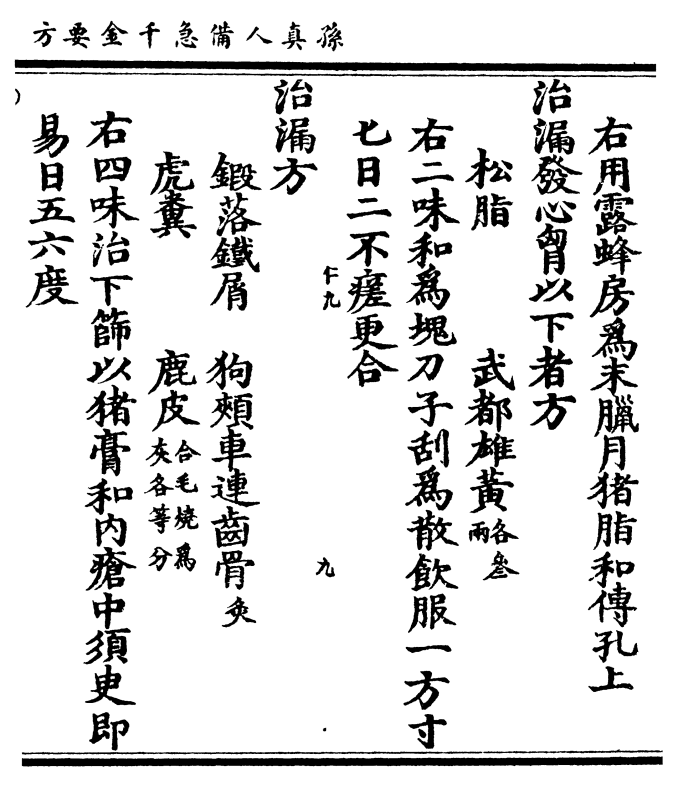 孫真人備急千金要方
右用露蜂房爲末臘月猪脂和傅孔上
治漏發心胷以下者方
松脂 武都雄黃各叁兩
右二味和爲塊刀子刮爲散飲服一方寸
七日二不瘥更合
九
九
治漏方
鍛落鐵屑 狗頰車連齒骨炙
虎糞 鹿皮合毛燒爲灰各等分
右四味治下篩以猪膏和内瘡中須臾即
易日五六度